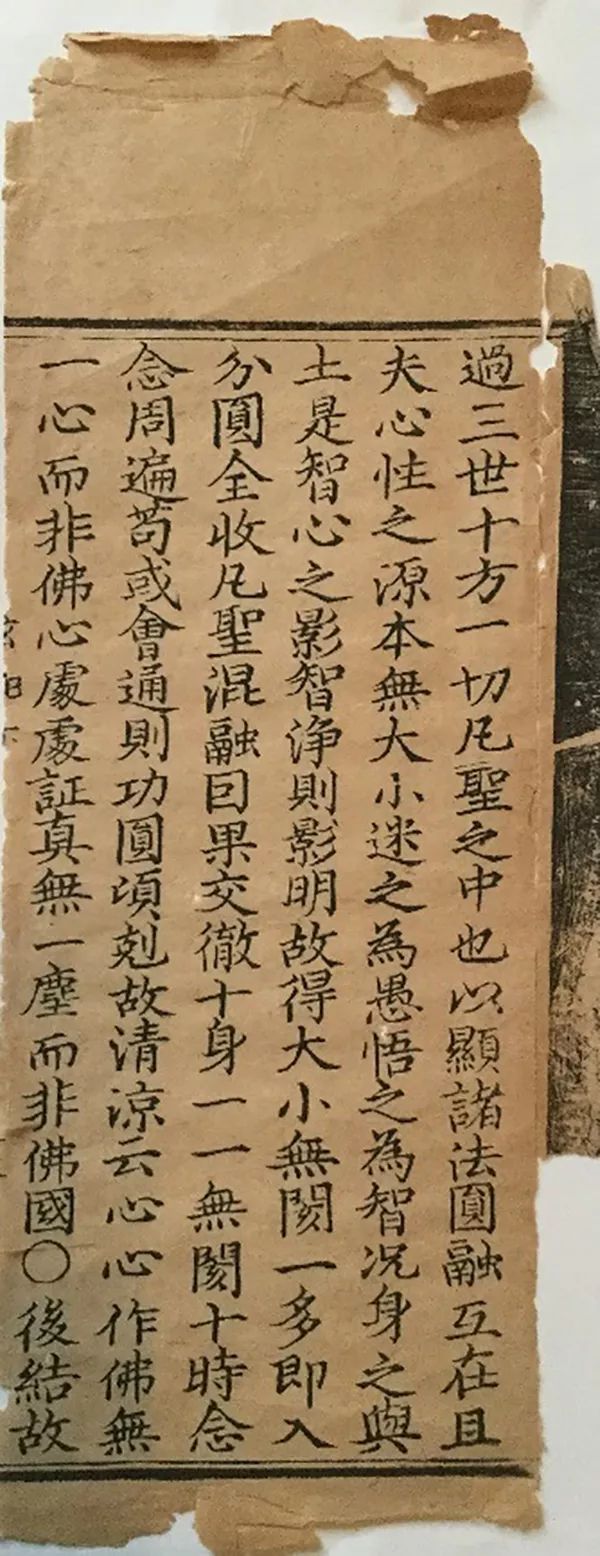 過三世十方一切凢聖之中也以顯諸法圓融互在且
夫心性之源本無大小迷之為愚悟之為智况身之與
土是智心之影智淨則影明故得大小無閡一多即入
分圓全收凢聖混融囙果交徹十身一一無閡十時念
念周遍苟或會通則功圓頃剋故清凉云心心作佛無
一心而非佛心處處証真無一塵而非佛國〇後結故